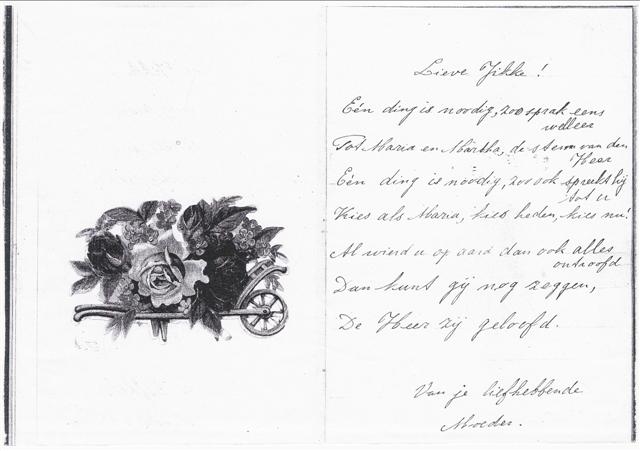 Lieve Jikke!
Eén ding is noodig, zoo sprak eens
welleer
Tot Maria en Martha, de stem van den
Heer
Eén ding is noodig, zoo ook spreekt hij
tot u
Kies als Maria, kies heden, kies nu!
Al wierd u op aard dan ook alles
ontroofd
Dan kunt gij nog zeggen,
De Heer zij geloofd.
Van je liefhebbende
Moeder.